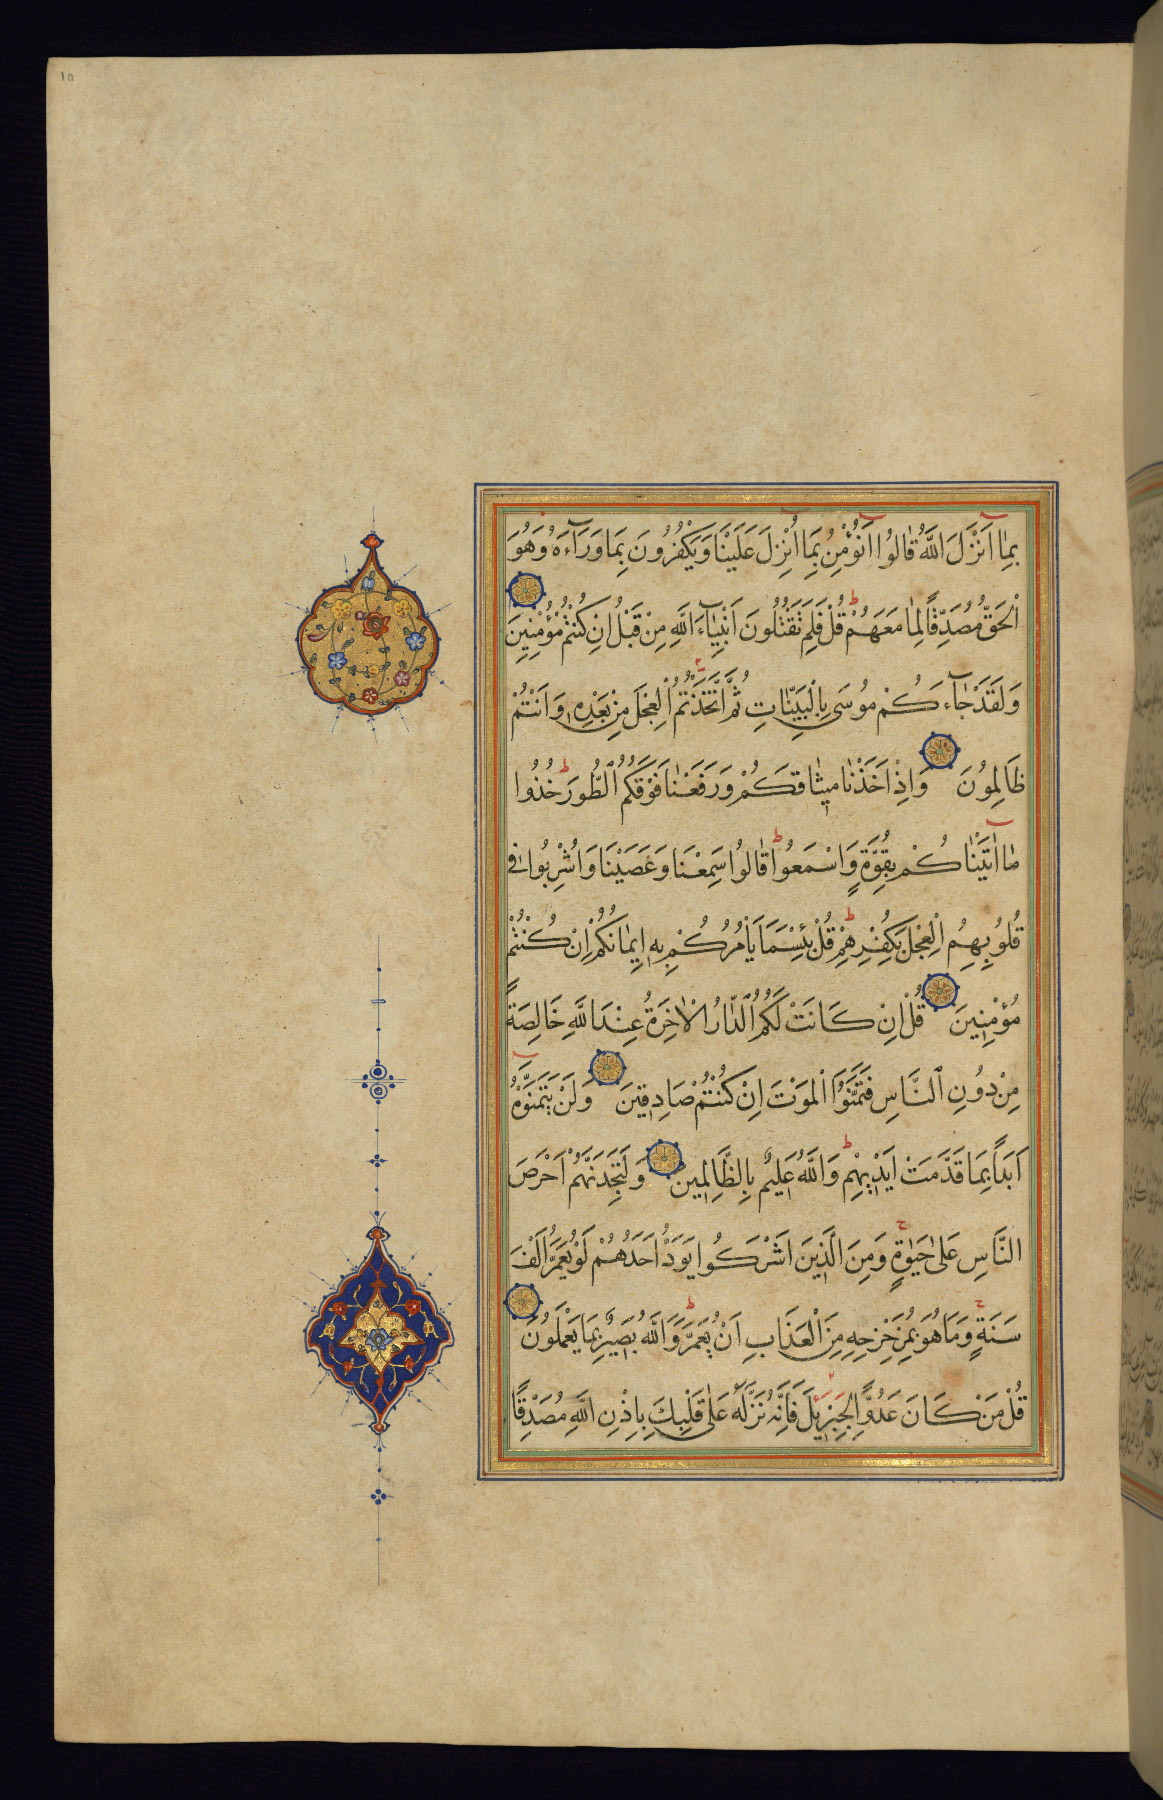 10
بِمَا اَنْزَلَ اللَّهُ قَالُوا اَنُؤْمِنُ بِمَا اُنْزِلَ عَلَيْنَا وَيَكْفُرُونَ بِمَا وَرَاءَهُ وَهُوَ
الْحَقُّ مُصَدِّقًا لِمَا مَعَهُمْ ط قُلْ فَلِمَ تَقْتُلُونَ اَنْبِيَاءَ اللَّهِ مِنْ قَبْلُ اِنْ كُنْتُمْ مُؤْمِنِينَ
وَلَقَدْ جَاءَكُمْ مُوسَى بِالْبَيِّنَاتِ ثُمَّ اتَّخَذْتُمُ الْعِجْلَ مِنْ بَعْدِهِ وَاَنْتُمْ
ظَالِمُونَ وَاِذْ اَخَذْنَا مِيثَاقَكُمْ وَرَفَعْنَا فَوْقَكُمُ الطُّورَ ط خُذُوا
مَا اٰتَيْنَاكُمْ بِقُوَّةٍ وَاسْمَعُوا ط قَالُوا سَمِعْنَا وَعَصَيْنَا وَاُشْرِبُوا فِي
قُلُوبِهِمُ الْعِجْلَ بِكُفْرِهِمْ ط قُلْ بِئْسَمَا يَأْمُرُكُمْ بِهِ اِيمَانُكُمْ اِنْ كُنْتُمْ
مُؤْمِنِينَ قُلْ اِنْ كَانَتْ لَكُمُ الدَّارُ الْاٰخِرَةُ عِنْدَ اللَّهِ خَالِصَةً
مِنْ دُونِ النَّاسِ فَتَمَنَّوُا الْمَوْتَ اِنْ كُنْتُمْ صَادِقِينَ وَلَنْ يَتَمَنَّوْهُ
اَبَدًا بِمَا قَدَّمَتْ اَيْدِيهِمْ ط وَاللَّهُ عَلِيمٌ بِالظَّالِمِينَ وَلَتَجِدَنَّهُمْ اَحْرَصَ
النَّاسِ عَلٰى حَيٰوةٍ ج وَمِنَ الَّذِينَ اَشْرَكُوا يَوَدُّ اَحَدُهُمْ لَوْ يُعَمَّرُ اَلْفَ
سَنَةٍ ج وَمَا هُوَ بِمُزَحْزِحِهِ مِنَ الْعَذَابِ اَنْ يُعَمَّرَ ط وَاللَّهُ بَصِيرٌ بِمَا يَعْمَلُونَ
قُلْ مَنْ كَانَ عَدُوًّا لِجِبْرِيلَ فَاِنَّهُ نَزَّلَهُ عَلٰى قَلْبِكَ بِاِذْنِ اللَّهِ مُصَدِّقًا